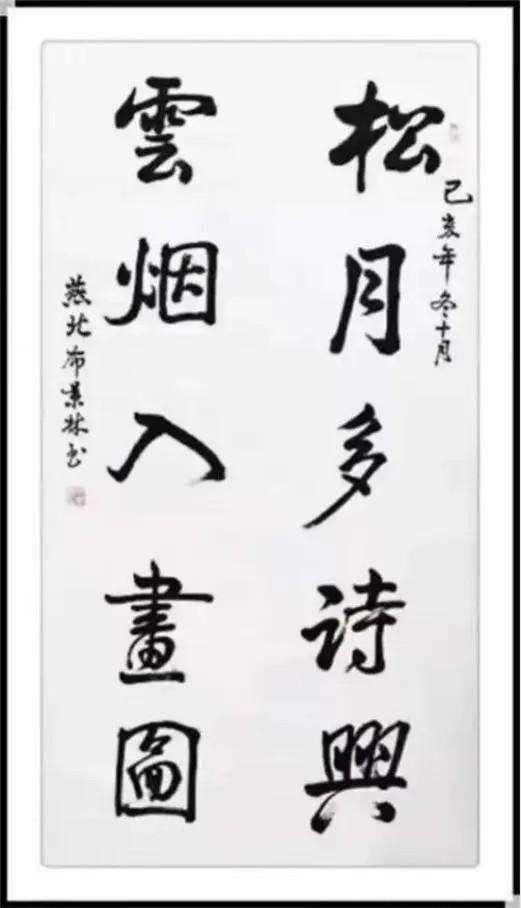 松月多诗興
己亥年冬十月
雲烟入畫圖
燕北布景林书